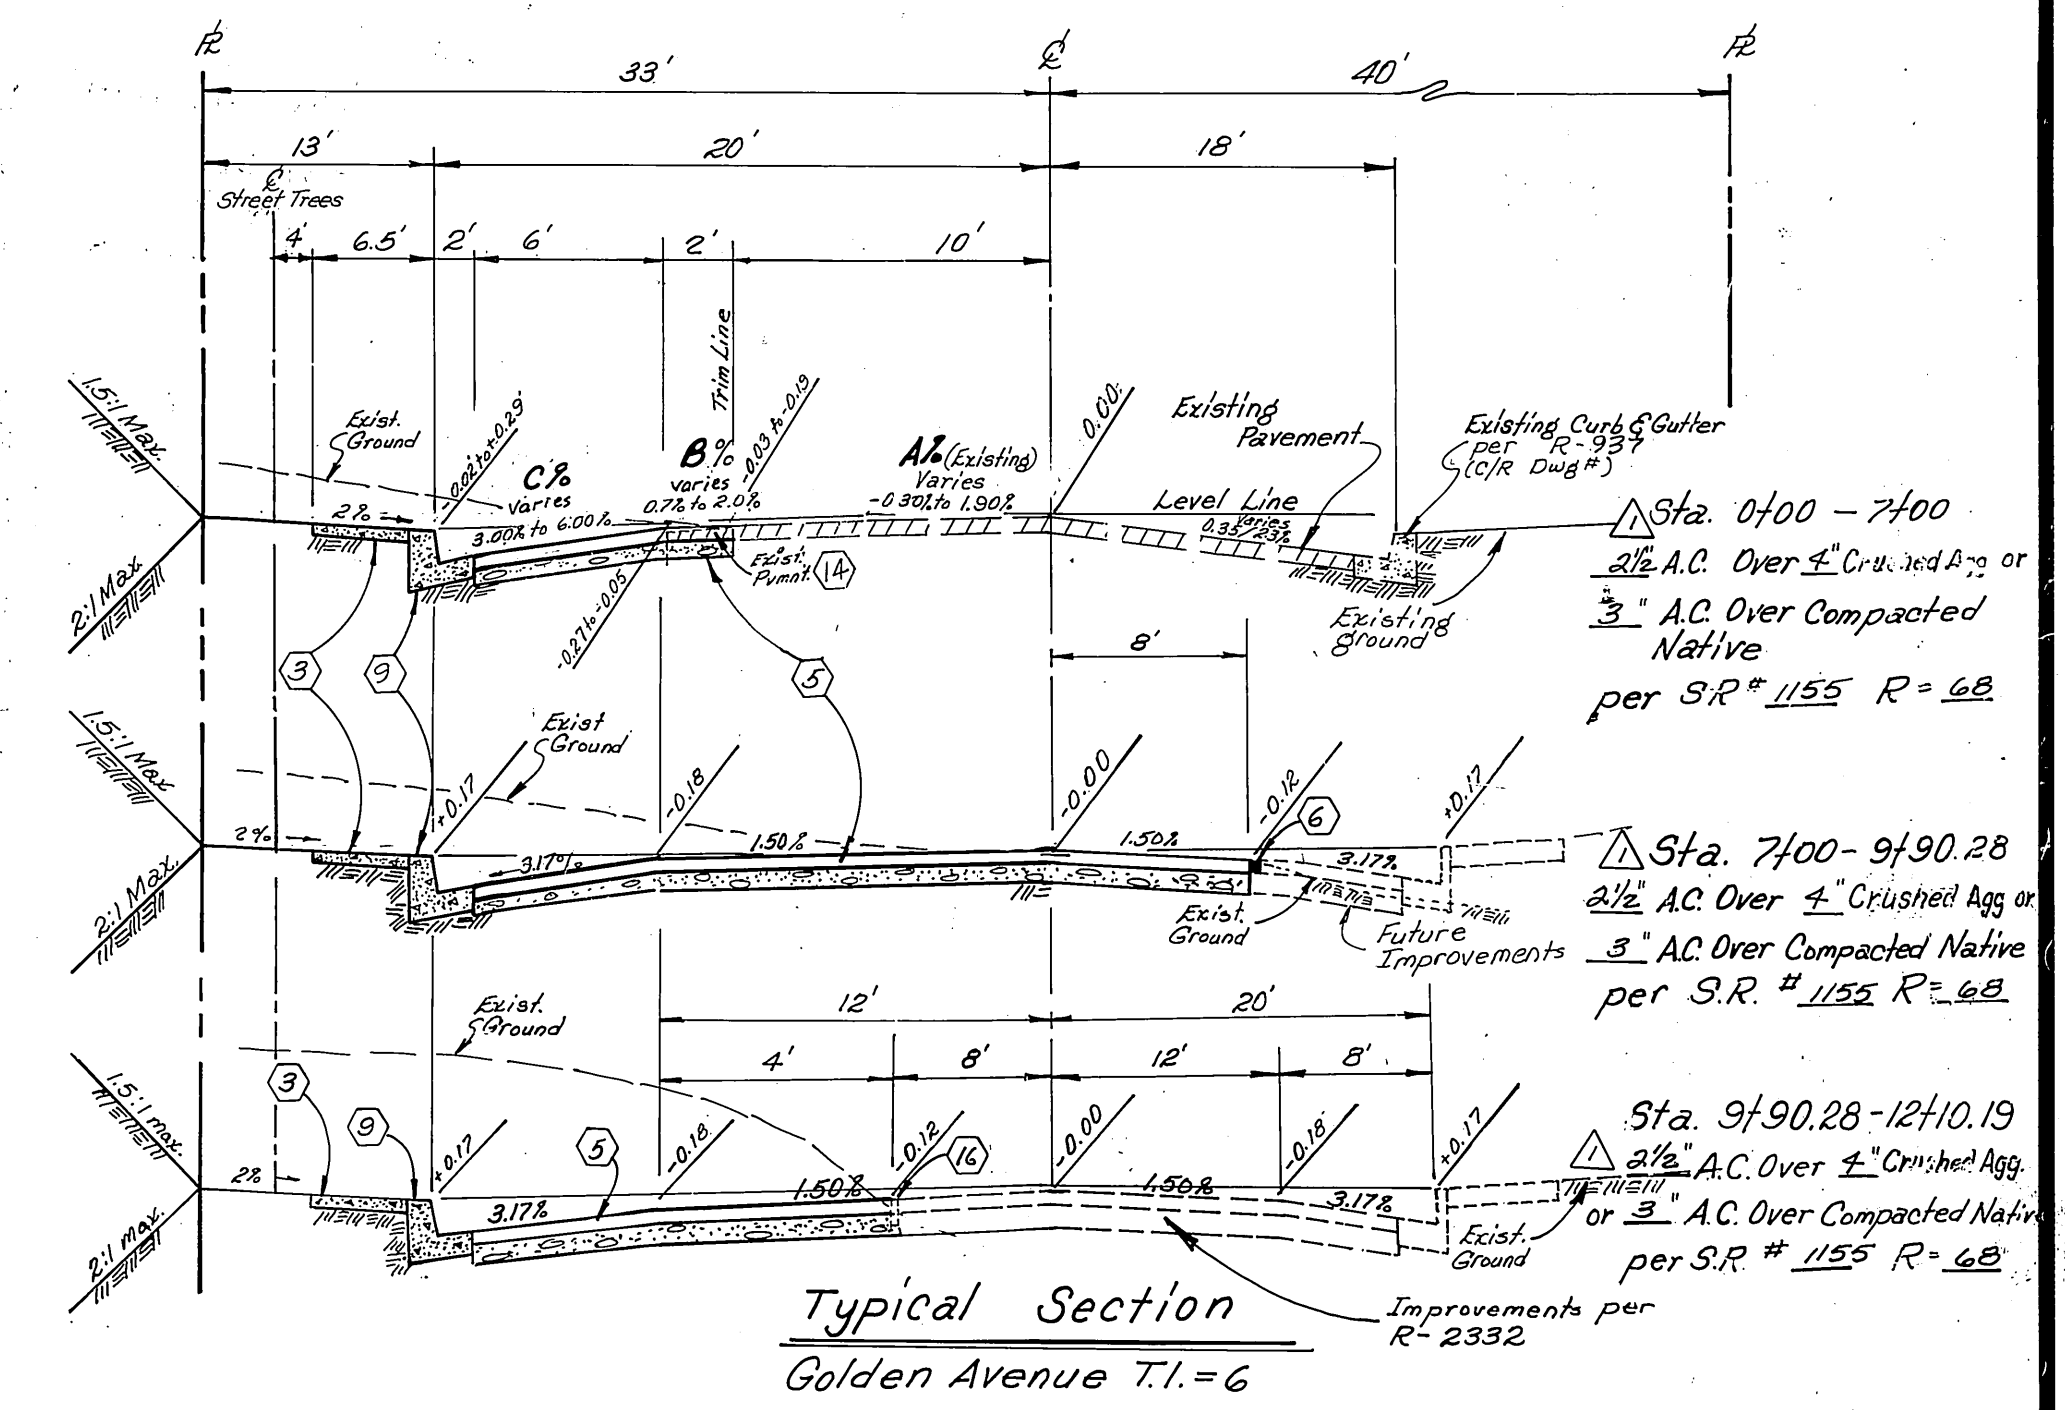 PL
33'
CL
40'
PL
13'
20'
18'
CL
Street Trees
4'
6.5'
2'
6'
2'
10'
Trim Line
1.5:1 Max.
2:1 Max.
Exist.
Ground
-0.02 to +0.29'
C%
varies
3.00% to 6.00%
B%
varies
0.7% to 2.0%
-0.03 to -0.19
A% (Existing)
Varies
-0.30% to 1.90%
0.00
Existing
Pavement
Level Line
Varies
Existing Curb & Gutter
per R-937
(C/R Dwg #)
2%
-0.27 to -0.05
Exist.
Pvmnt.
14
Existing
ground
1 Sta. 0+00 - 7+00
2½" A.C. Over 4" Crushed Agg or
3" A.C. Over Compacted
Native
per S.R # 1155 R = 68
3
9
5
8'
1.5:1 Max
2:1 Max.
Exist
Ground
+0.17
-0.18
-0.00
-0.12
6
+0.17
2%
3.17%
1.50%
1.50%
3.17%
Exist.
Ground
Future
Improvements
1 Sta. 7+00 - 9+90.28
2½" A.C. Over 4" Crushed Agg or
3" A.C. Over Compacted Native
per S.R. # 1155 R = 68
12'
20'
4'
8'
12'
8'
Exist.
Ground
1.5:1 max.
2:1 max.
3
9
5
16
+0.17
-0.18
-0.12
-0.00
-0.18
+0.17
2%
3.17%
1.50%
1.50%
3.17%
Exist.
Ground
Sta. 9+90.28-12+10.19
1 2½" A.C. Over 4" Crushed Agg.
or 3" A.C. Over Compacted Native
per S.R. # 1155 R = 68
Improvements per
R-2332
Typical Section
Golden Avenue T.I. = 6